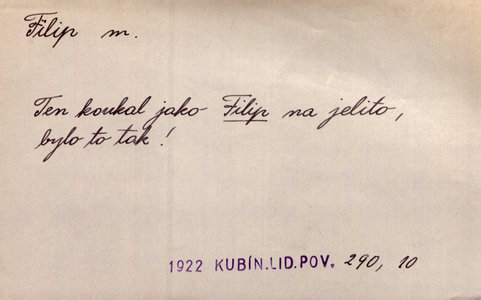 Filip m.
Ten koukal jako Filip na jelito,
bylo to tak!
1922 KUBÍN.LID.POV. 290, 10